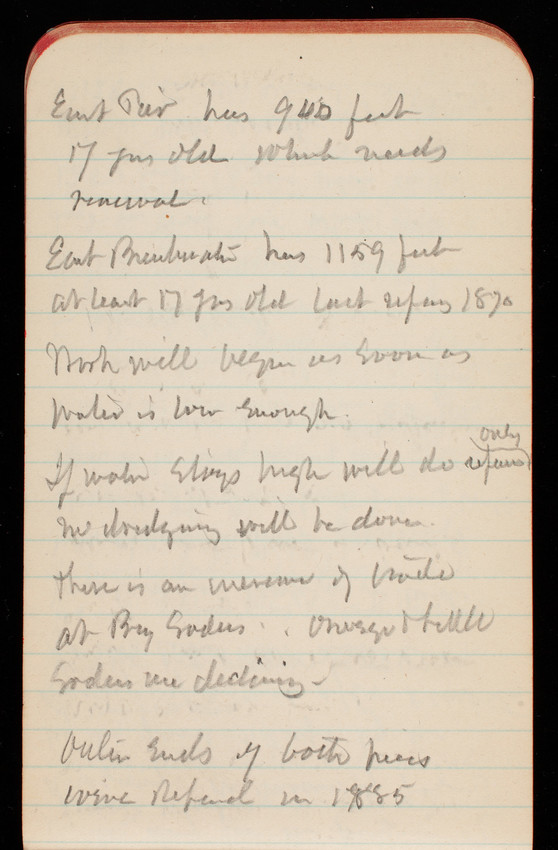 East Pier has 940 feet
17 yrs old which needs
renewal.
East Breakwater has 1159 feet
at least 17 yrs old last repairs 1870
Work will begin as soon as
water is low enough.
If water stays high will do only repairs
no dredging will be done.
There is an increase of trade
at Big Sodus. Oswego & Little
Sodus are declining -
Outer Ends of both piers
were Repaired in 1885